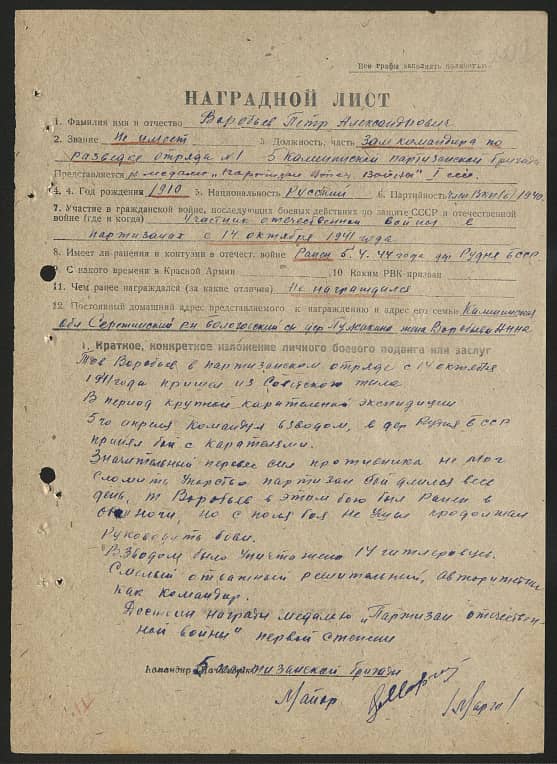 Все графы заполнять полностью
НАГРАДНОЙ ЛИСТ
1. Фамилия имя и отчество Воробьев Петр Александрович
2. Звание Не имеет 3 Должность, часть Зам командира по
разведке отряда №1 5 Калининской партизанской бригады
Представляется к медали „Партизан Отеч. Войны" I степ.
3. 4. Год рождения 1910 5. Национальность Русский 6. Партийность член ВКП(б) 1940.
7. Участие в гражданской войне, последующих боевых действиях по защите СССР и отечественной
войне (где и когда) Участник отечественной войны в
партизанах с 14 октября 1941 года
8. Имеет ли ранения и контузии в отечест. войне Ранен 5.4.44 года дер Рудня БССР
С какого времени в Красной Армии 10 Каким РВК призван
11. Чем ранее награждался (за какие отличия) Не награждался
12. Постоянный домашний адрес представляемого к награждению и адрес его семьи Калининская
обл дер жена Воробьева Анна
1. Краткое, конкретное изложение личного боевого подвига или заслуг
Тов Воробьев в партизанском отряде с 14 октября
1941 года пришел из Советского тыла
В период крупной карательной экспедиции
5го апреля командуя взводом, в дер Рудня БССР
принял бой с карателями.
Значительный перевес сил противника не мог
сломить упорство партизан бой длился весь
день, т Воробьев в этом бою был ранен в
обе ноги, но с поля боя не ушел продолжал
руководить боем.
Взводом было уничтожено 14 гитлеровцев.
Смелый отважный решительный, авторитетен
как командир.
Достоин награды медалью „Партизан отечествен-
ной войны" первой степени
Командир 5 Калин партизанской бригады
Майор